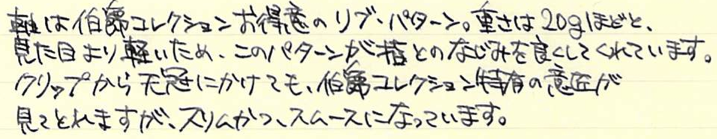 軸は伯爵コレクションお得意のリブ・パターン。重さは20gほどと、
見た目より軽いため、このパターンが指とのなじみを良くしてくれています。
クリップから天冠にかけても、伯爵コレクション特有の意匠が
見てとれますが、スリムかつ、スムースになっています。